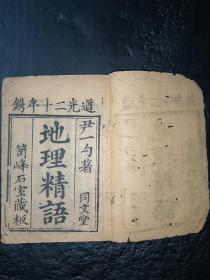 道光二十年鐫
尹一勺著
地理精語
同文堂
簡峰石室藏板